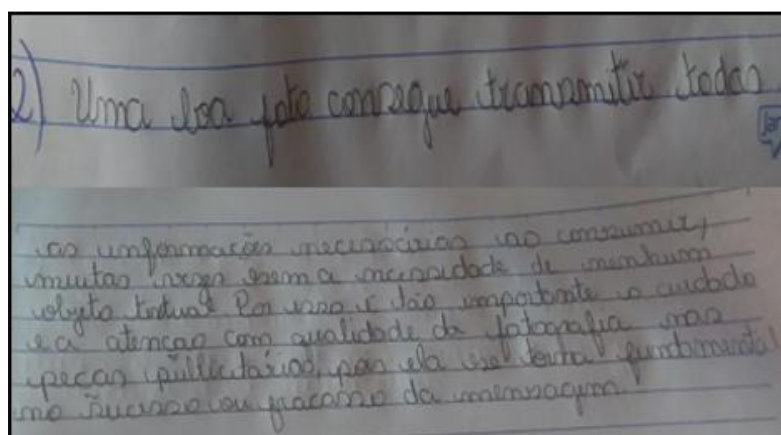 2) Uma boa foto consegue transmitir todas
as informações necessárias ao consumir,
muitas vezes sem a necessidade de nenhum
objeto textual Por isso é tão importante o cuidado
e a atencao com qualidade da fotografia nas
peças publicitárias, pois ela se torna fundamental
no sucesso ou fracasso da mensagem.